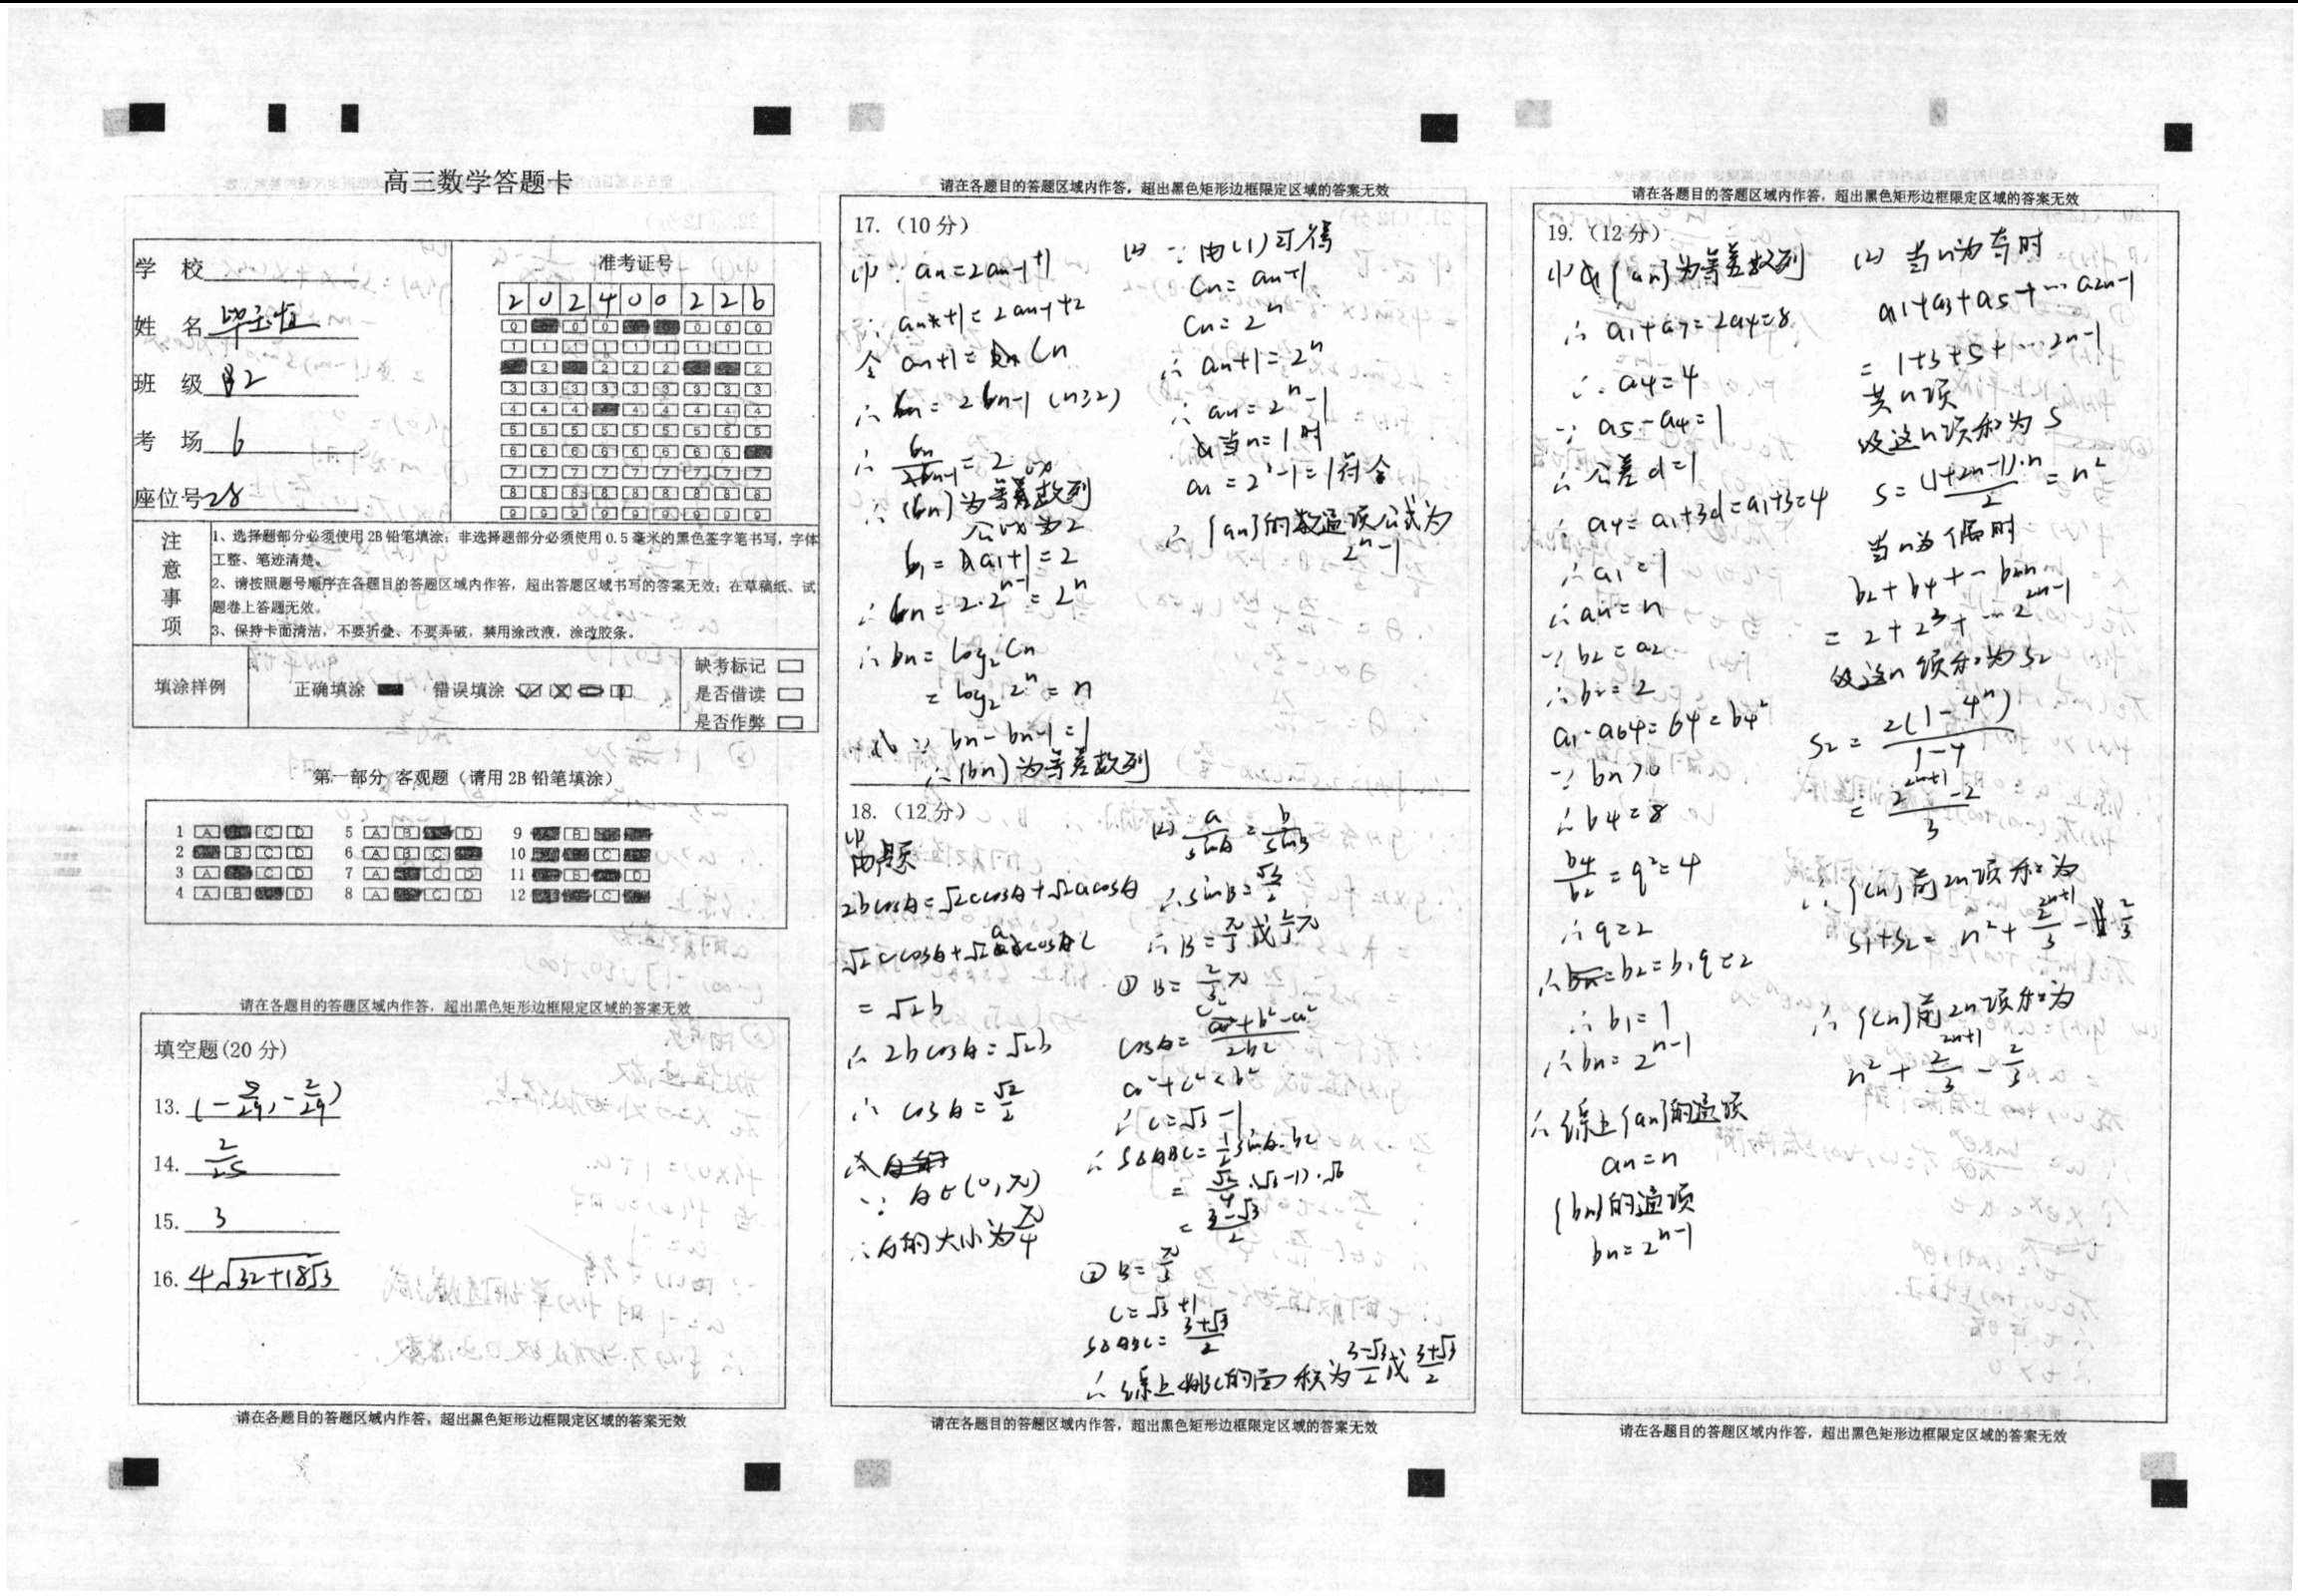 高三数学答题卡
学 校
姓 名
班 级 2
考 场 6
座位号28
准考证号
2 0 2 4 0 0 2 2 6
注意事项
1、选择题部分必须使用2B铅笔填涂；非选择题部分必须使用0.5毫米的黑色签字笔书写，字体
工整、笔迹清楚。
2、请按照题号顺序在各题目的答题区域内作答，超出答题区域书写的答案无效；在草稿纸、试
题卷上答题无效。
3、保持卡面清洁，不要折叠、不要弄破，禁用涂改液，涂改胶条。
填涂样例
正确填涂
错误填涂
缺考标记
是否借读
是否作弊
第一部分 客观题（请用2B铅笔填涂）
1 A C D 5 A B D 9 B
2 B C D 6 A B C 10 C
3 A C D 7 A C D 11 B D
4 A B D 8 A C D 12 C
请在各题目的答题区域内作答，超出黑色矩形边框限定区域的答案无效
填空题(20分)
13.
14. 2/25
15. 3
16. 4√32+18√3
请在各题目的答题区域内作答，超出黑色矩形边框限定区域的答案无效
请在各题目的答题区域内作答，超出黑色矩形边框限定区域的答案无效
17.（10分）
(1) ∵ an=2an-1+1
∴ an+1=2an-1+2
令 an+1= Cn
∴ bn=2bn-1 (n≥2)
∴ bn/bn-1=2
∴ {bn}为等比数列
公比为2
b1=a1+1=2
∴ bn=2·2^(n-1)=2^n
∴ bn=log2 Cn
=log2 2^n=n
∵ bn-bn-1=1
∴ {bn}为等差数列
(2) ∵ 由(1)可得
Cn=an+1
Cn=2^n
∴ an+1=2^n
∴ an=2^n-1
当n=1时
a1=2^1-1=1符合
∴ {an}的通项公式为
2^n-1
18.（12分）
(1)
由题
2bcosA=√2ccosA+√2acosA
√2ccosA+√2acosC
=√2b
∴ 2bcosA=√2b
∴ cosA=√2/2
∵ A∈(0,π)
∴ A的大小为π/4
(2) a/sinA=b/sinB
∴ sinB=√3/2
∴ B=π/3或2/3π
① B=2/3π
cosA=(c²+b²-a²)/2bc
a²+c²<b²
∴ c=√3-1
∴ S△ABC=1/2sinA·bc
=√2/4·(√3-1)·√6
=(3-√3)/2
② B=π/3
c=√3+1
S△ABC=(3+√3)/2
∴ 综上△ABC的面积为(3-√3)/2或(3+√3)/2
请在各题目的答题区域内作答，超出黑色矩形边框限定区域的答案无效
请在各题目的答题区域内作答，超出黑色矩形边框限定区域的答案无效
19.（12分）
(1) {an}为等差数列
∴ a1+a7=2a4=8
∴ a4=4
∵ a5-a4=1
∴ 公差d=1
∴ a4=a1+3d=a1+3=4
∴ a1=1
∴ an=n
∵ b2=a2
∴ b2=2
a1·a64=64=b4²
∵ bn>0
∴ b4=8
b4/b2=q²=4
∴ q=2
∴ b2=b1q=2
∴ b1=1
∴ bn=2^(n-1)
∴ 综上{an}的通项
an=n
{bn}的通项
bn=2^(n-1)
(2) 当n为奇时
a1+a3+a5+…a2n-1
=1+3+5+…2n-1
共n项
设这n项和为S
S=(1+2n-1)·n/2=n²
当n为偶时
b2+b4+…b2n
=2+2³+…2^(2n-1)
设这n项和为S2
S2=2(1-4^n)/(1-4)
=(2^(2n+1)-2)/3
∴ {Cn}前2n项和为
S1+S2=n²+2^(2n+1)/3-2/3
∴ {Cn}前2n项和为
n²+2^(2n+1)/3-2/3
请在各题目的答题区域内作答，超出黑色矩形边框限定区域的答案无效